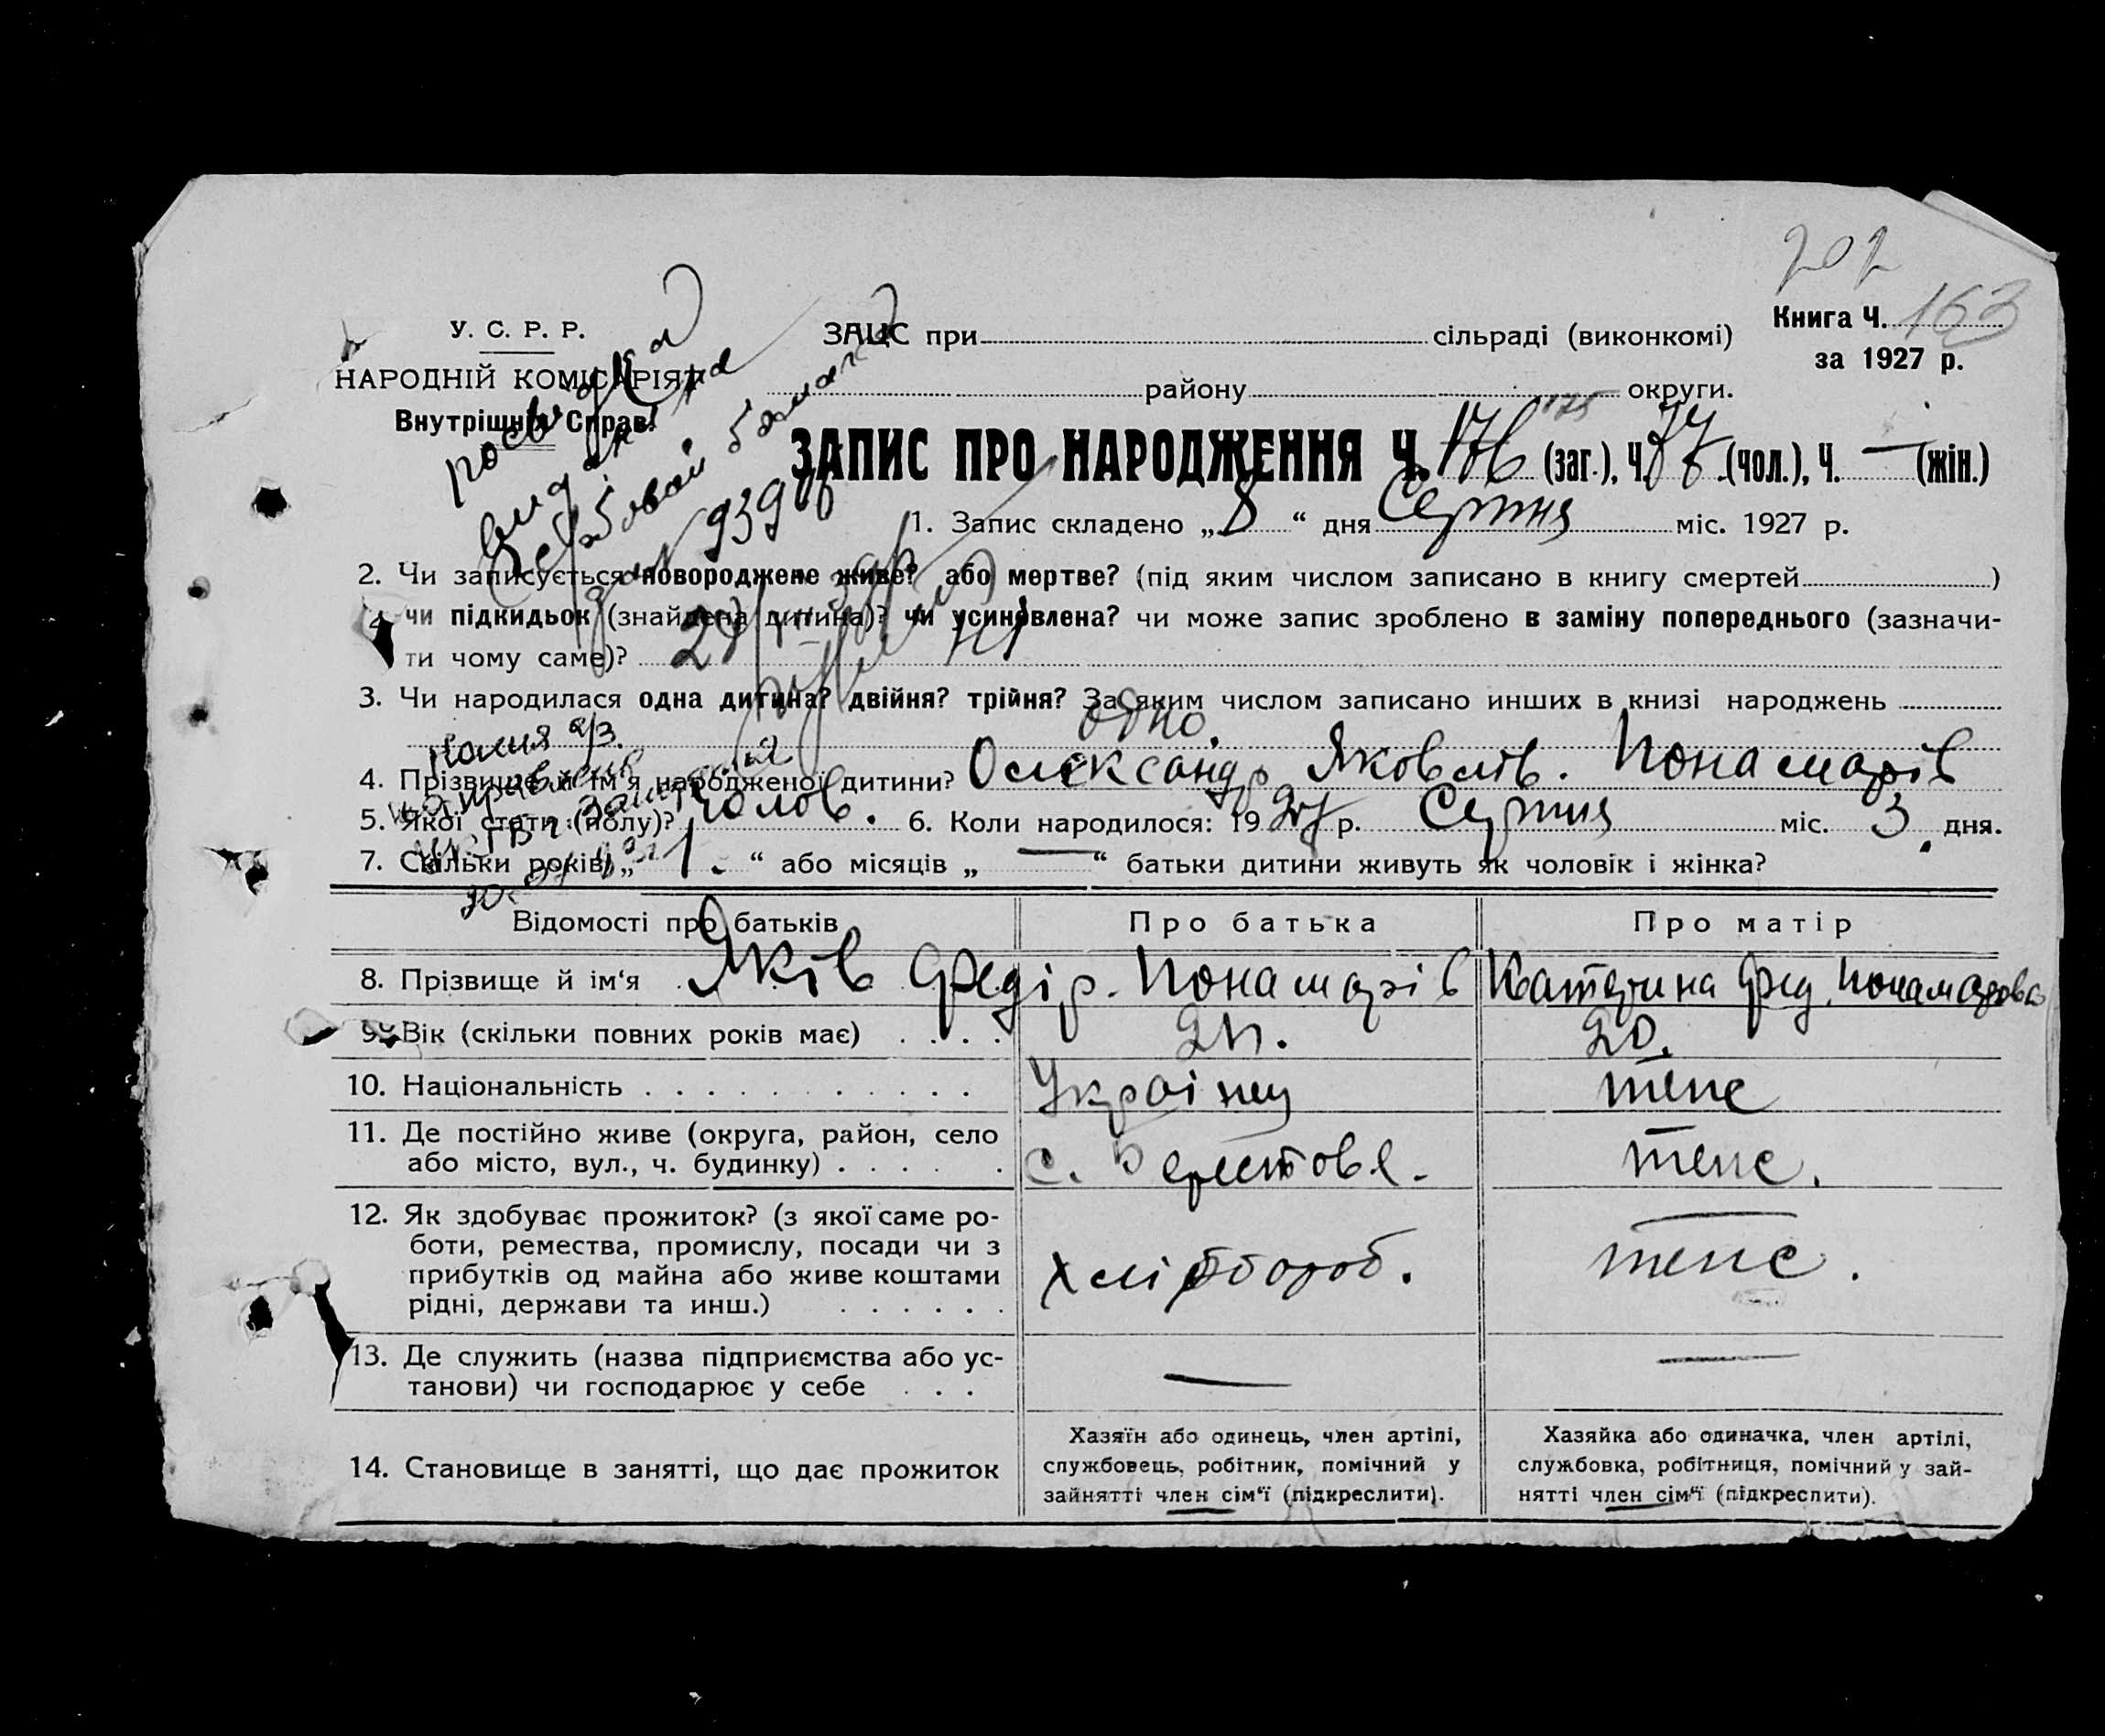 202
У. С. Р. Р.
НАРОДНІЙ КОМІСАРІЯТ
Внутрішніх Справ.
ЗАЦС при сільраді (виконкомі)
району округи.
Книга Ч. 163
за 1927 р.
175
ЗАПИС ПРО НАРОДЖЕННЯ Ч. 176 (заг.), Ч. (чол.), Ч. — (жін.)
1. Запис складено „ 8 “ дня Серпня міс. 1927 р.
2. Чи записується новороджене живе? або мертве? (під яким числом записано в книгу смертей )
чи підкидьок (знайдена дитина)? чи усиновлена? чи може запис зроблено в заміну попереднього (зазначи-
ти чому саме)?
3. Чи народилася одна дитина? двійня? трійня? За яким числом записано инших в книзі народжень
одно.
4. Прізвище й ім'я народженої дитини? Олександр Яковлів. Понамарів
5. Якої стати (полу)? чолов. 6. Коли народилося: 1927 р. Серпня міс. 3 дня.
7. Скільки років „ 1. “ або місяців „ — “ батьки дитини живуть як чоловік і жінка?
Відомості про батьків Про батька Про матір
8. Прізвище й ім‘я Яків Федір. Понамарів Катерина Фед. Понамарова
9. Вік (скільки повних років має) 20.
10. Національність Українц теж
11. Де постійно живе (округа, район, село
або місто, вул., ч. будинку) с. Берестове. теж.
12. Як здобуває прожиток? (з якої саме ро-
боти, ремества, промислу, посади чи з
прибутків од майна або живе коштами
рідні, держави та инш.) хлібороб. теж.
13. Де служить (назва підприємства або ус-
танови) чи господарює у себе — —
14. Становище в занятті, що дає прожиток
Хазяїн або одинець, член артілі,
службовець, робітник, помічний у
зайнятті член сім‘ї (підкреслити).
Хазяйка або одиначка, член артілі,
службовка, робітниця, помічний у зай-
нятті член сім‘ї (підкреслити).